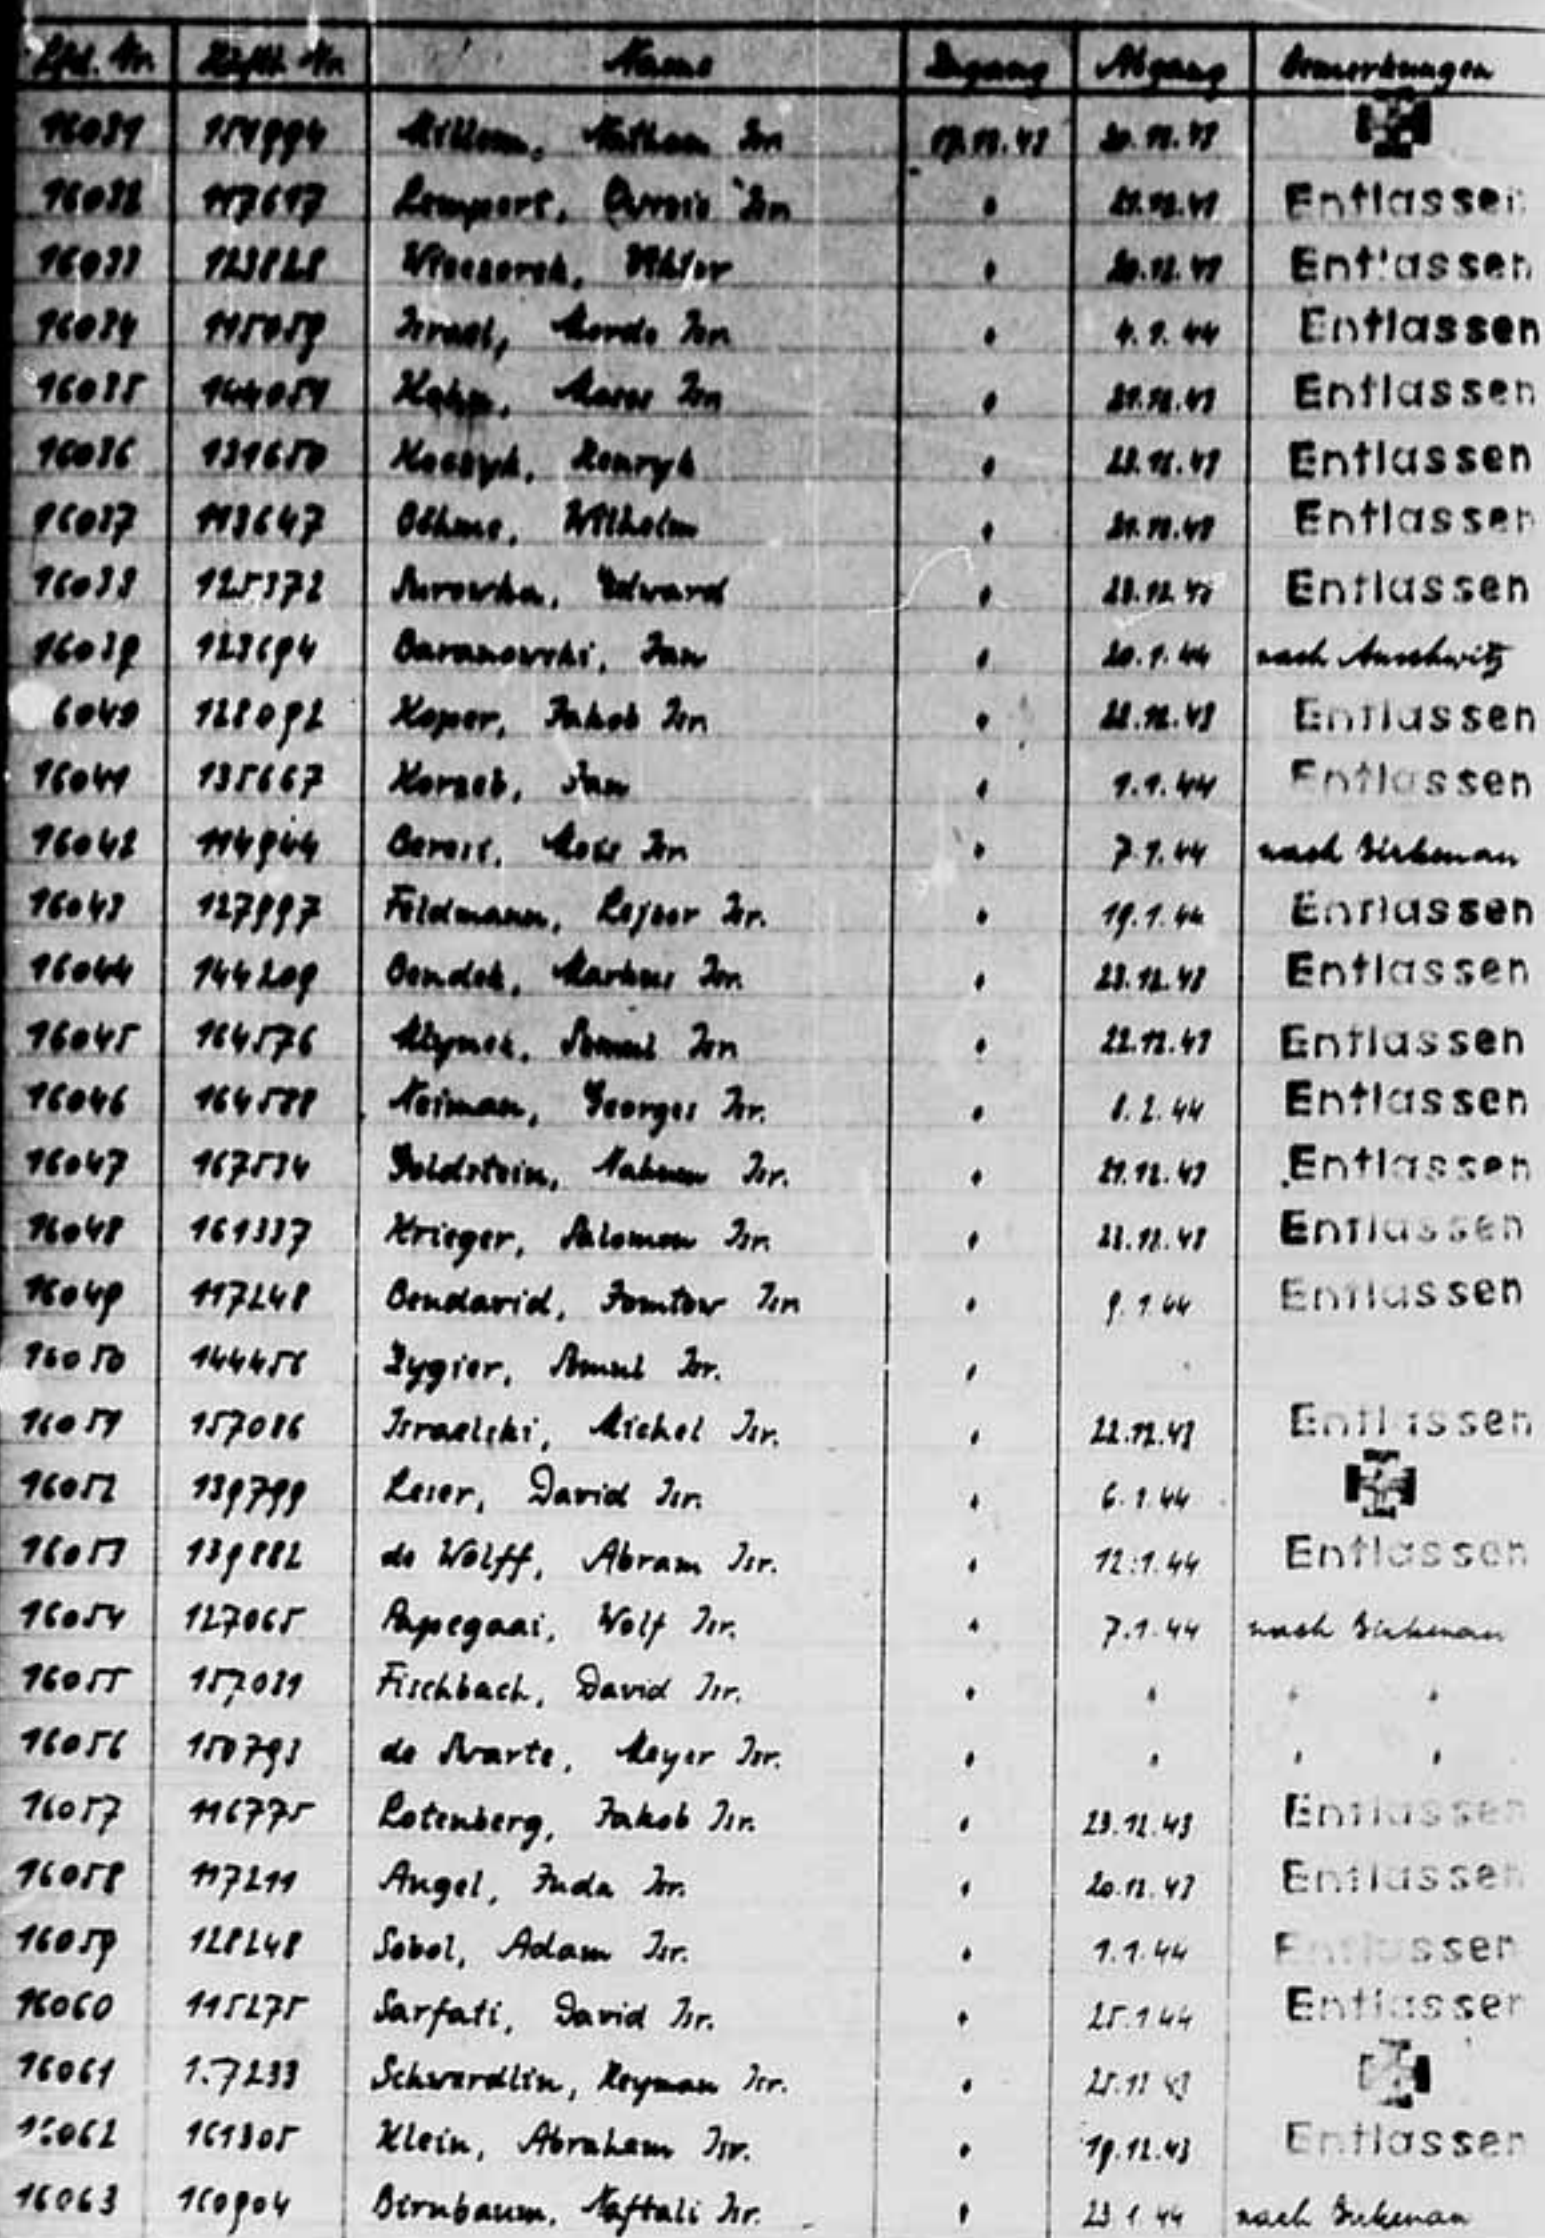 Lfd. Nr. Häftl. Nr. Name Zugang Abgang Bemerkungen
16031 Nathan Isr. 20.12.43
16032 117617 Lempert, Isr. 21.12.43 Entlassen
16033 123828 Viktor 20.12.43 Entlassen
16034 115059 Israel, Isr. 4.1.44 Entlassen
16035 144051 Isr. 21.12.43 Entlassen
16036 131650 Henryk 23.12.43 Entlassen
16037 113647 Böhme, Wilhelm 21.12.43 Entlassen
16038 125372 Surowka, Edward Entlassen
16039 123694 Baranowski, Jan 20.1.44 nach Auschwitz
6040 128092 Koper, Jakob Isr. 22.12.43 Entlassen
16041 135667 Korzeb, Jan 1.1.44 Entlassen
16042 114944 Isr. 7.1.44 nach Birkenau
16043 127997 Feldmann, Isr. 19.1.44 Entlassen
16044 144209 Bendek, Markus Isr. 23.12.43 Entlassen
16045 164576 Mlynek, Samuel Isr. 22.12.43 Entlassen
16046 164588 Neiman, Georges Isr. 8.2.44 Entlassen
16047 167534 Goldstein, Nahum Isr. 21.12.43 Entlassen
16048 161337 Krieger, Salomon Isr. 23.12.43 Entlassen
16049 117248 Bendavid, Jomtow Isr. 9.1.44 Entlassen
16050 144456 Zygier, Samuel Isr.
16051 157086 Israelski, Michel Isr. 22.12.43 Entlassen
16052 139799 Leser, David Isr. 6.1.44
16053 139882 de Wolff, Abram Isr. 12.1.44 Entlassen
16054 127065 Papegaai, Wolf Isr. 7.1.44 nach Birkenau
16055 157031 Fischbach, David Isr.
16056 150793 de Swarte, Meyer Isr.
16057 116775 Rotenberg, Jakob Isr. 23.12.43 Entlassen
16058 117211 Angel, Juda Isr. 20.12.43 Entlassen
16059 128248 Sobol, Adam Isr. 1.1.44 Entlassen
16060 115275 Sarfati, David Isr. 25.1.44 Entlassen
16061 Schwerdlin, Heyman Isr. 25.12.43
16062 161305 Klein, Abraham Isr. 19.12.43 Entlassen
16063 160904 Birnbaum, Naftali Isr. 23.1.44 nach Birkenau